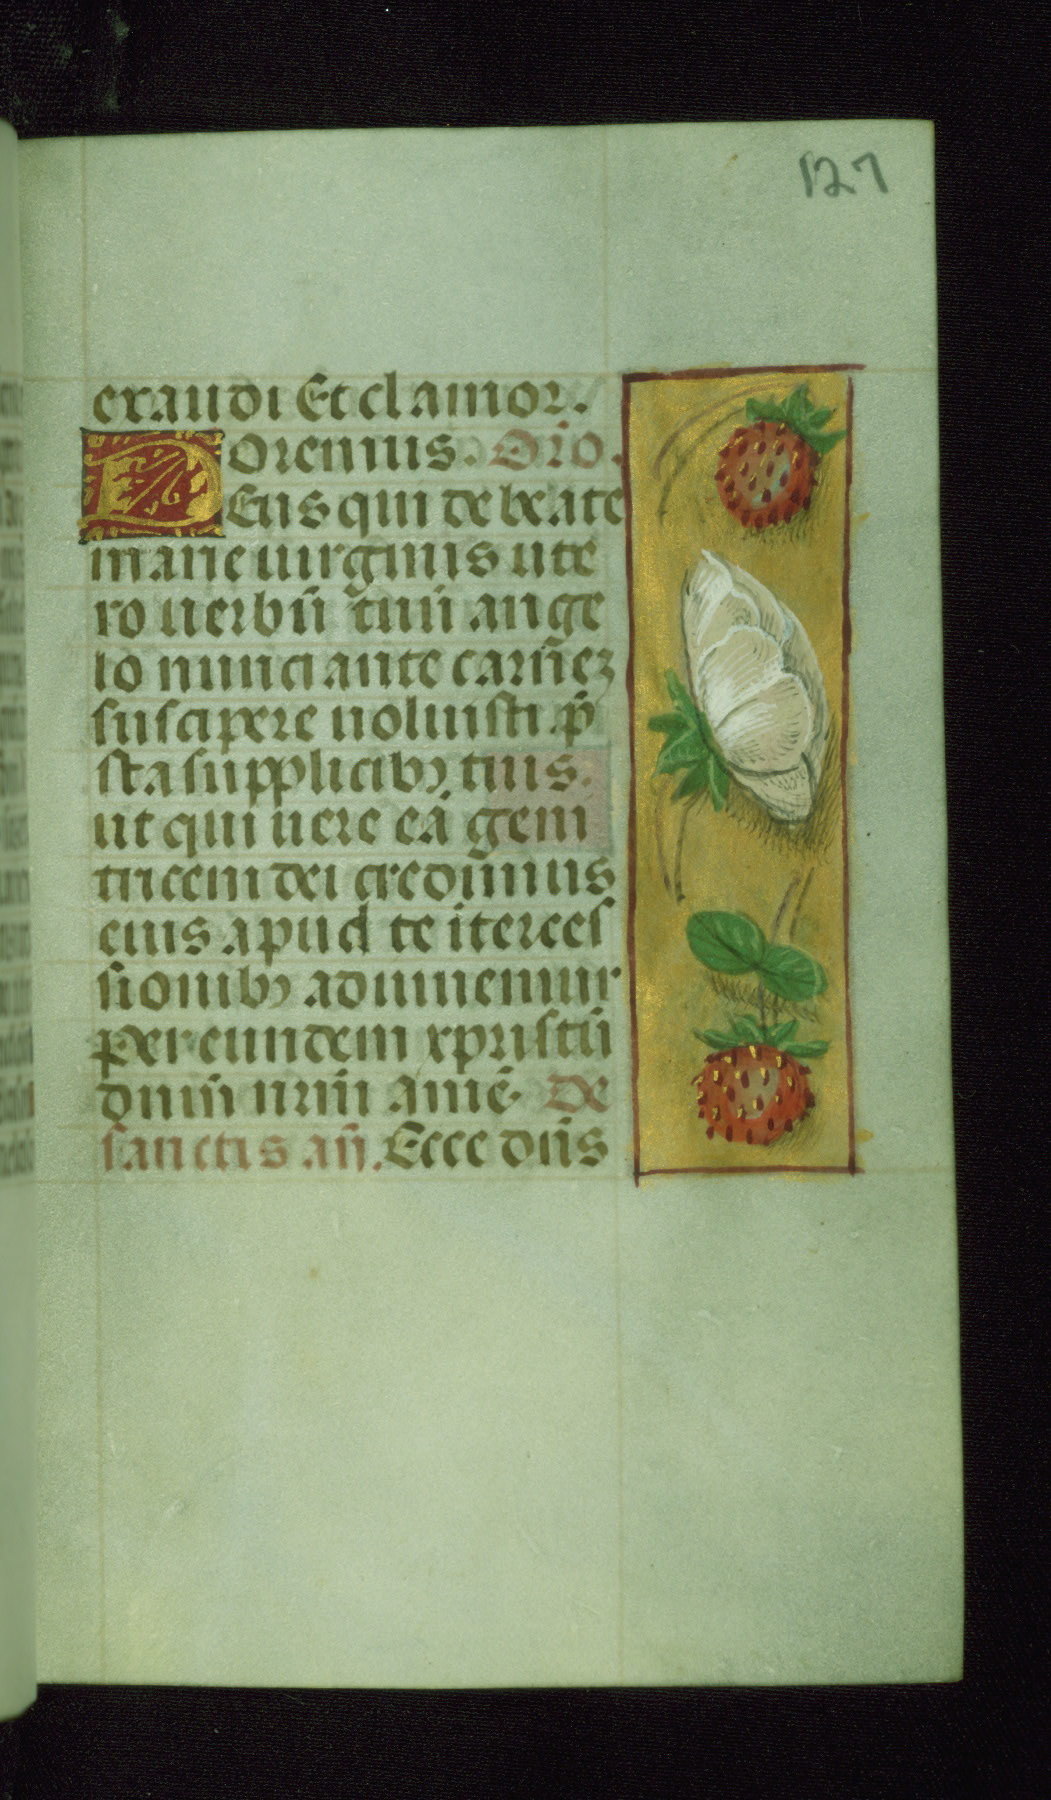 127
exaudi Et clamor.
Oremus. Orō.
Deus qui de beate
marie uirginis ute
ro uerbū tuū ange
lo nunciante carnēz
suscipere uoluisti p̄
sta supplicibꝫ tuis.
ut qui uere eā geni
tricem dei credimus
eius apud te ītercēs
sionibꝫ adiuuemur
per eundem xpristū
dnm̄ nrm̄ amē. De
sanctis an̄. Ecce dn̄s